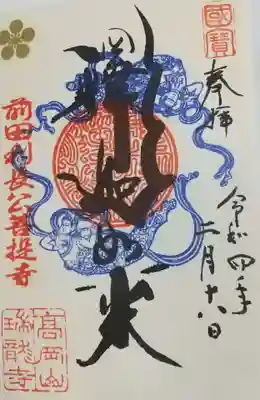 國寶
奉拝
令和四年
二月十八日
釈迦如来
前田利長公菩提寺
高岡山
瑞龍寺